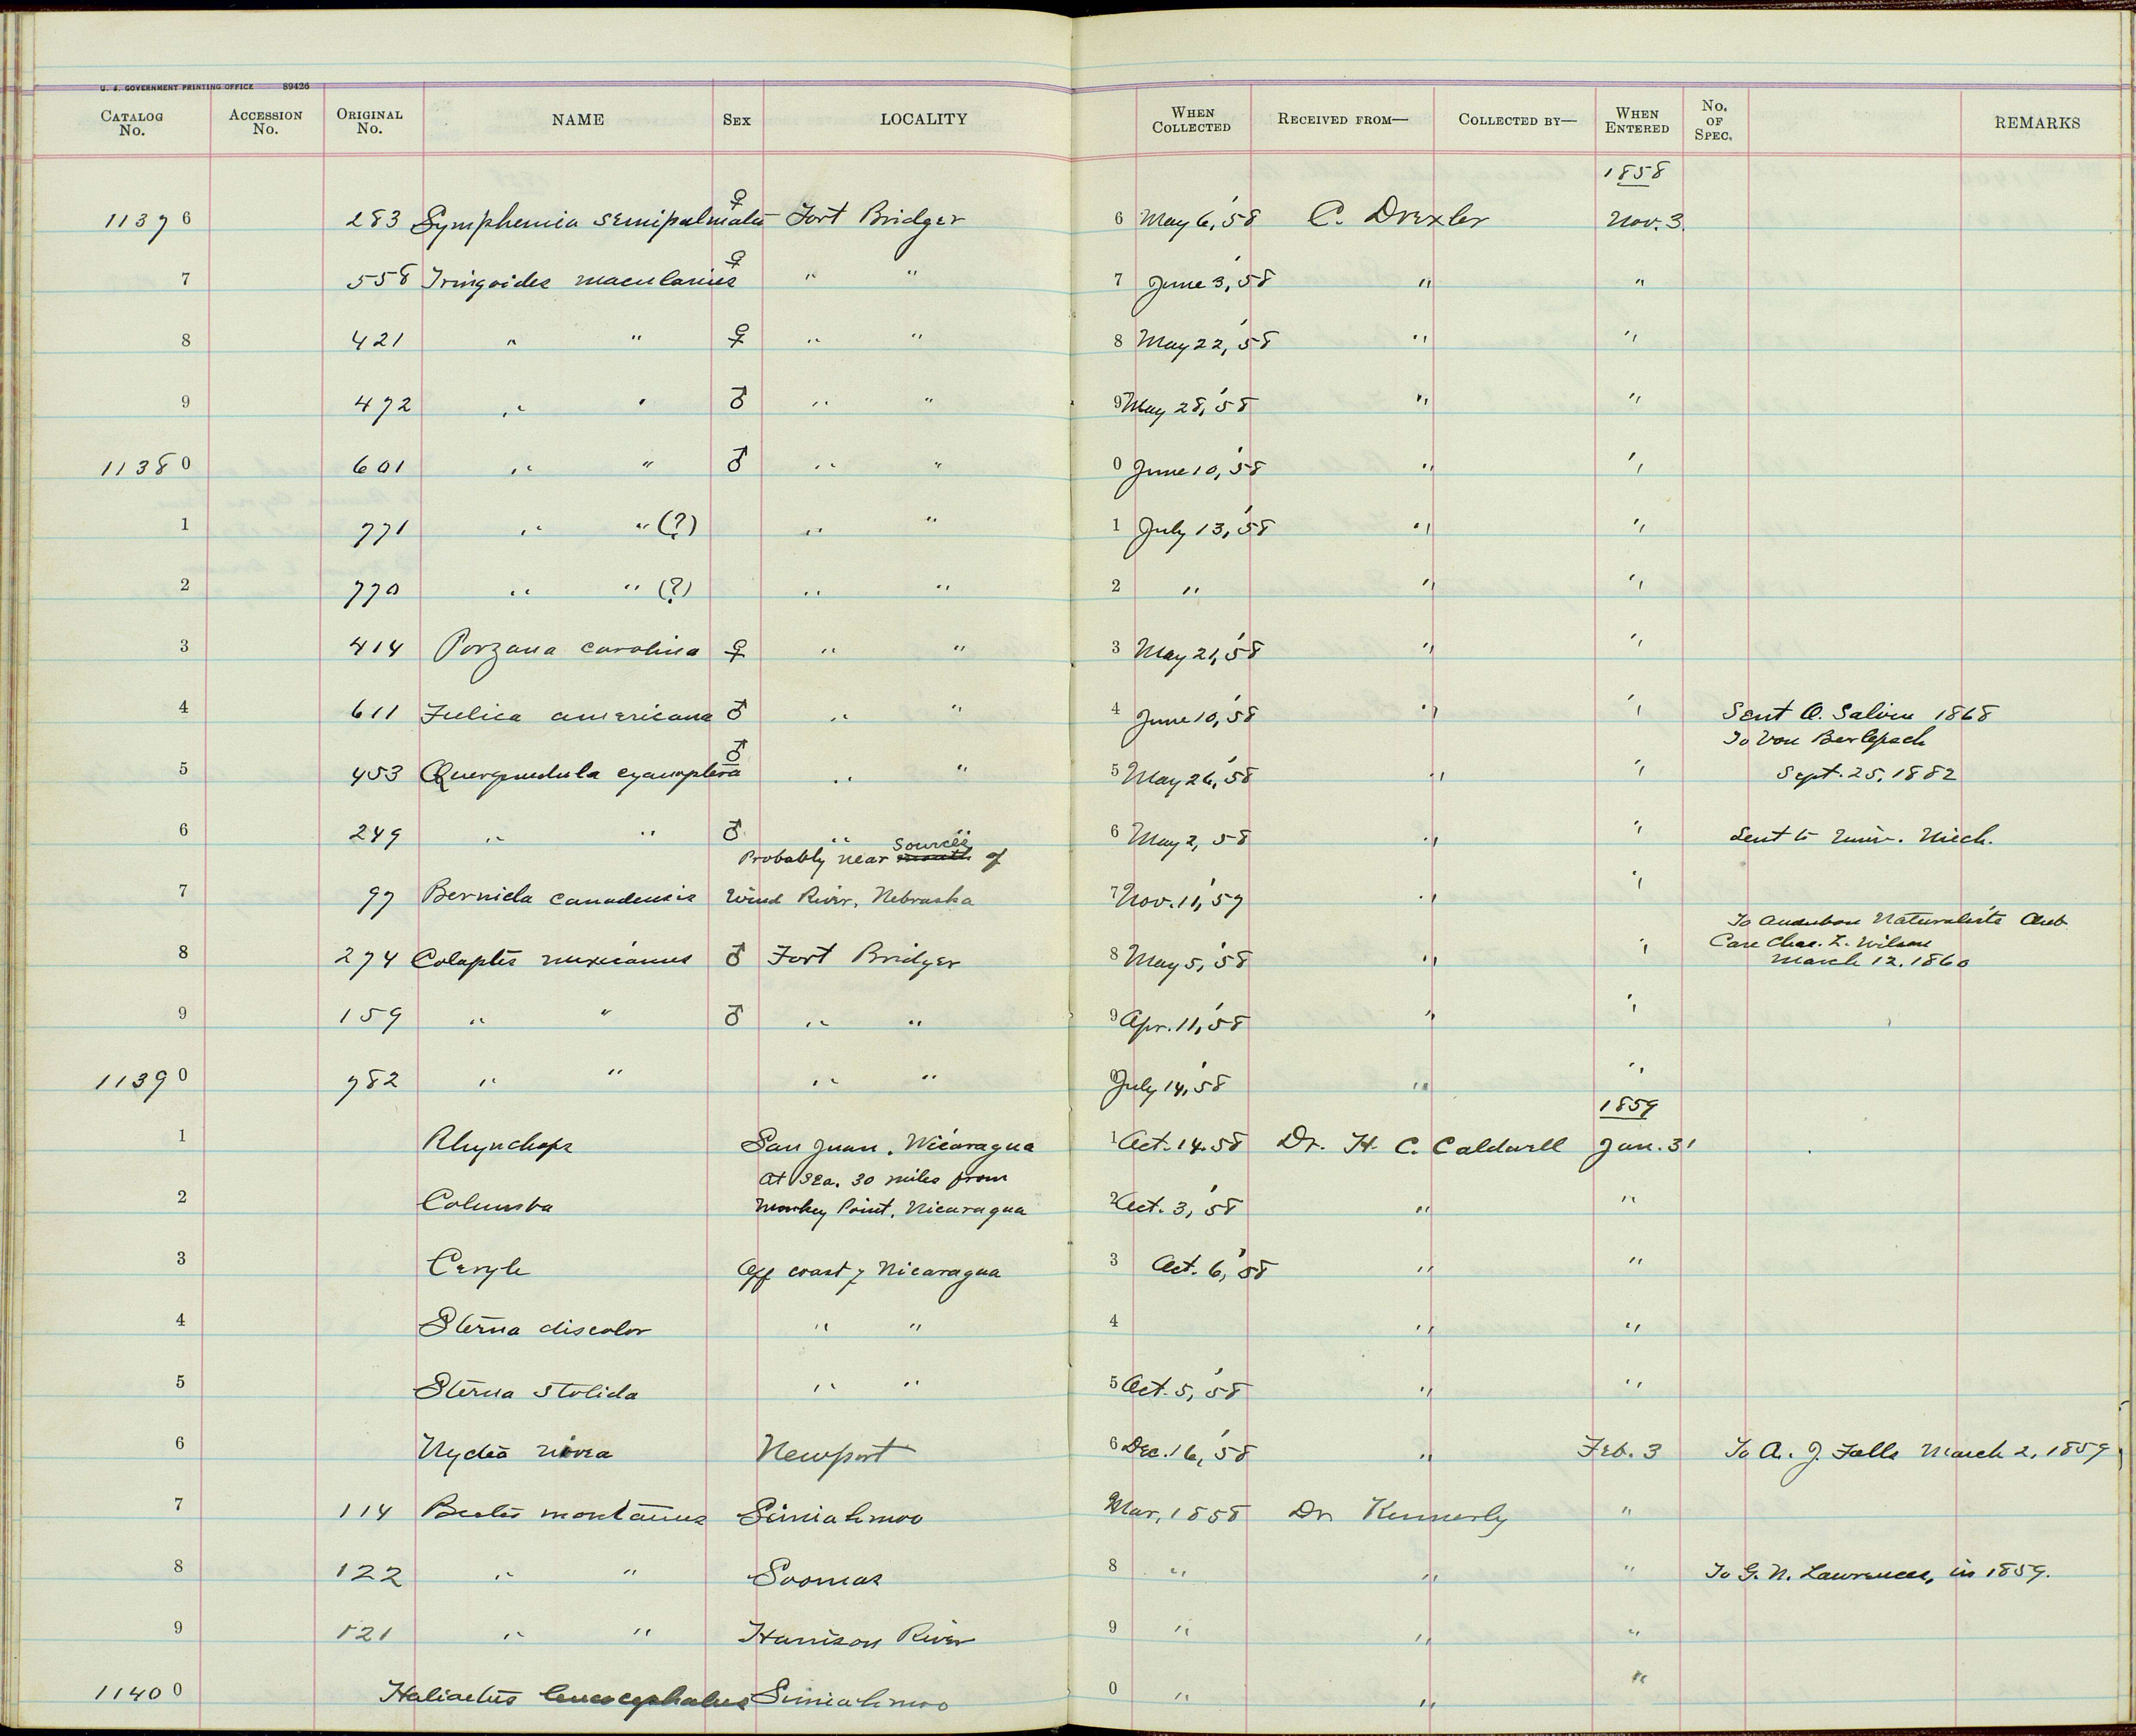 U. S. GOVERNMENT PRINTING OFFICE 89426
CATALOG No. ACCESSION No. ORIGINAL No. NAME SEX LOCALITY WHEN COLLECTED RECEIVED FROM— COLLECTED BY— WHEN ENTERED No. OF SPEC. REMARKS
1858
11376 283 Symphemia semipalmata ♀ Fort Bridger 6 May 6, '58 C. Drexler Nov. 3.
7 558 Tringoides macularius ♀ " " 7 June 3, '58 " "
8 421 " " ♀ " " 8 May 22, '58 " "
9 472 " " ♂ " " 9 May 28, '58 " "
11380 601 " " ♂ " " 0 June 10, '58 " "
1 771 " " (?) " " 1 July 13, '58 " "
2 770 " " (?) " " 2 " " "
3 414 Porzana carolina ♀ " " 3 May 21, '58 " "
4 611 Fulica americana ♂ " " 4 June 10, '58 " " Sent O. Salvin 1868
To Von Berlepsch
5 453 Querquedula cyanoptera ♂ " " 5 May 26, '58 " " Sept. 25, 1882
6 249 " " ♂ " " 6 May 2, 58 " " Sent to Univ. Mich.
Probably near mouth Sources of
7 97 Bernicla canadensis Wind River, Nebraska 7 Nov. 11, '57 " "
To Audubon Naturalists Club
Care Chas. L. Wilson
8 274 Colaptes mexicanus ♂ Fort Bridger 8 May 5, '58 " " March 12, 1860
9 159 " " ♂ " " 9 Apr. 11, '58 " "
11390 782 " " " " July 14, '58 " "
1859
1 Rhynchops San Juan, Nicaragua 1 Oct. 14. 58 Dr. H. C. Caldwell Jan. 31
At Sea. 30 miles from
2 Columba Monkey Point, Nicaragua 2 Oct. 3, '58 " "
3 Ceryle Off coast of Nicaragua 3 Oct. 6, '58 " "
4 Sterna discolor " " 4 " "
5 Sterna stolida " " 5 Oct. 5, '58 " "
6 Nyctea nivea Newport 6 Dec. 16, '58 " Feb. 3 To A. J. Falls March 2, 1859
7 114 Buteo montanus Simiahmoo Mar, 1858 Dr Kennerly "
8 122 " " Soomas 8 " " " To G. N. Lawrence, in 1859.
9 121 " " Harrison River 9 " " "
11400 Haliaetus leucocephalus Simiahmoo 0 " " "